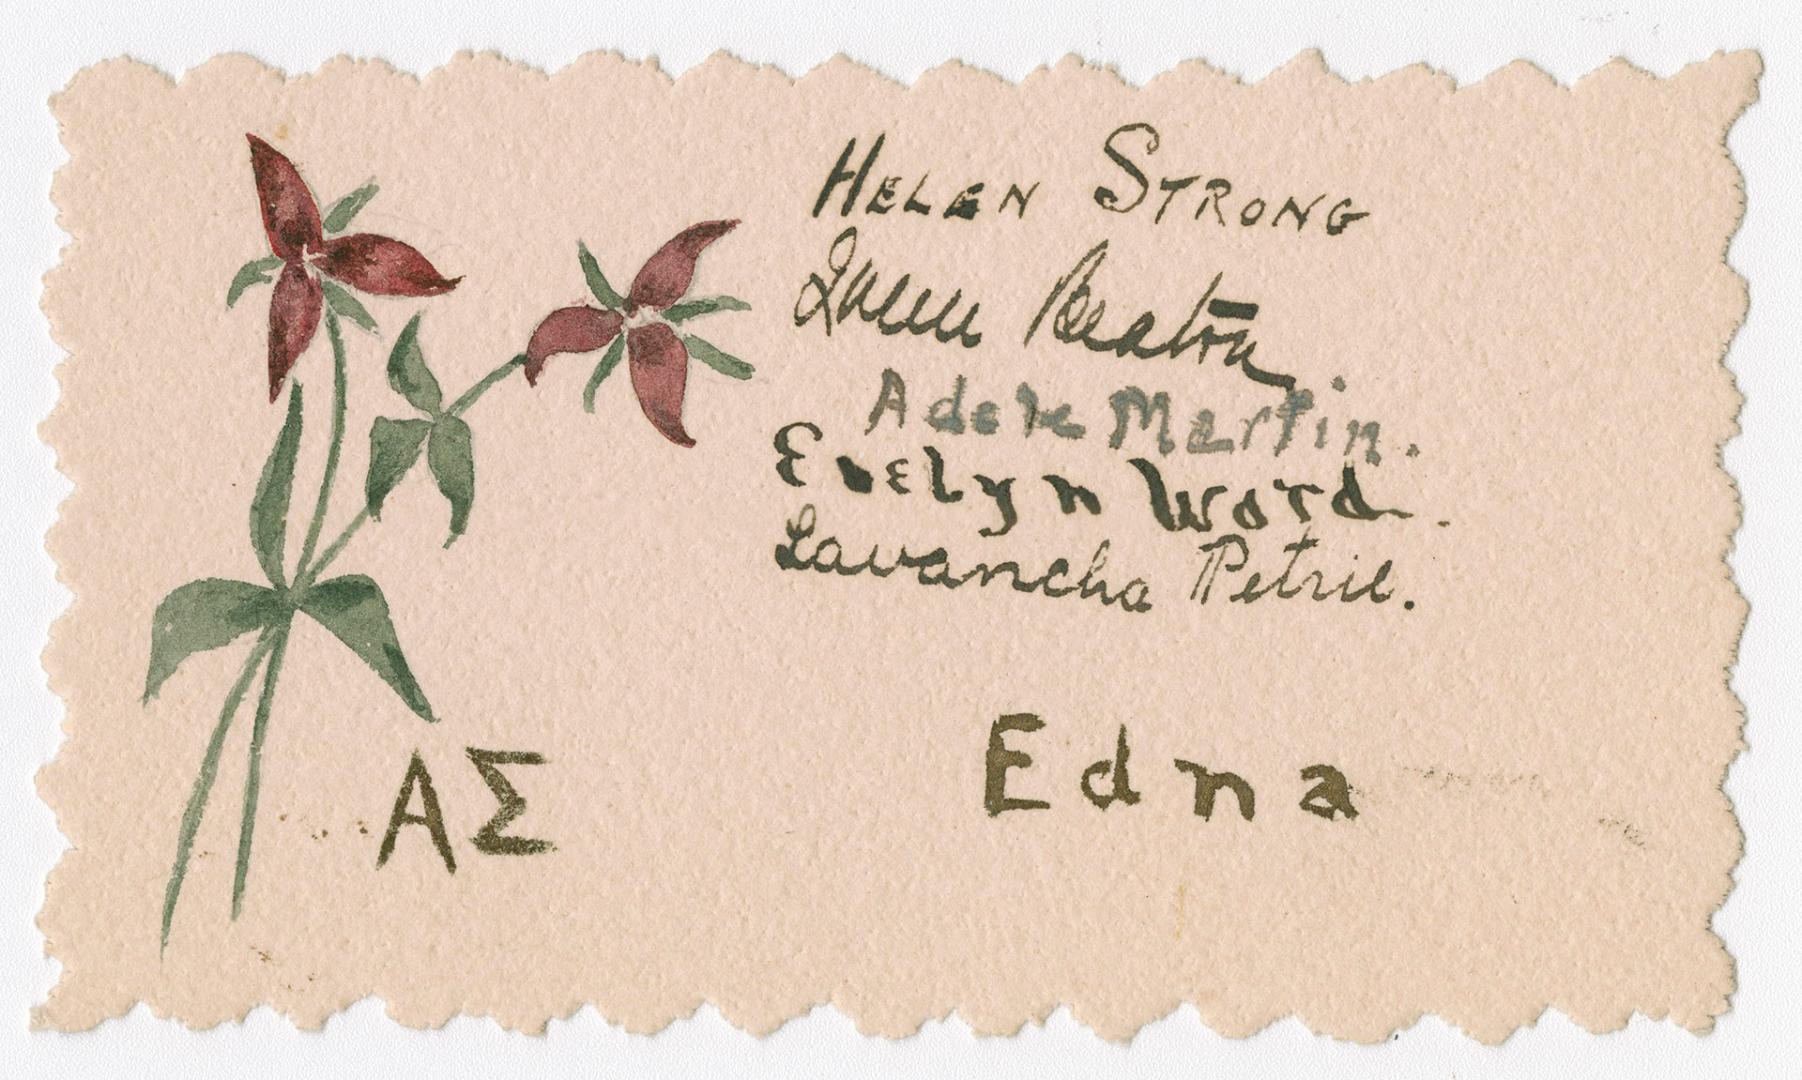 HELEN STRONG
Queen Beaton
Adele Martin.
Evelyn Ward.
Lavancha Petrie.
Edna
ΑΣ